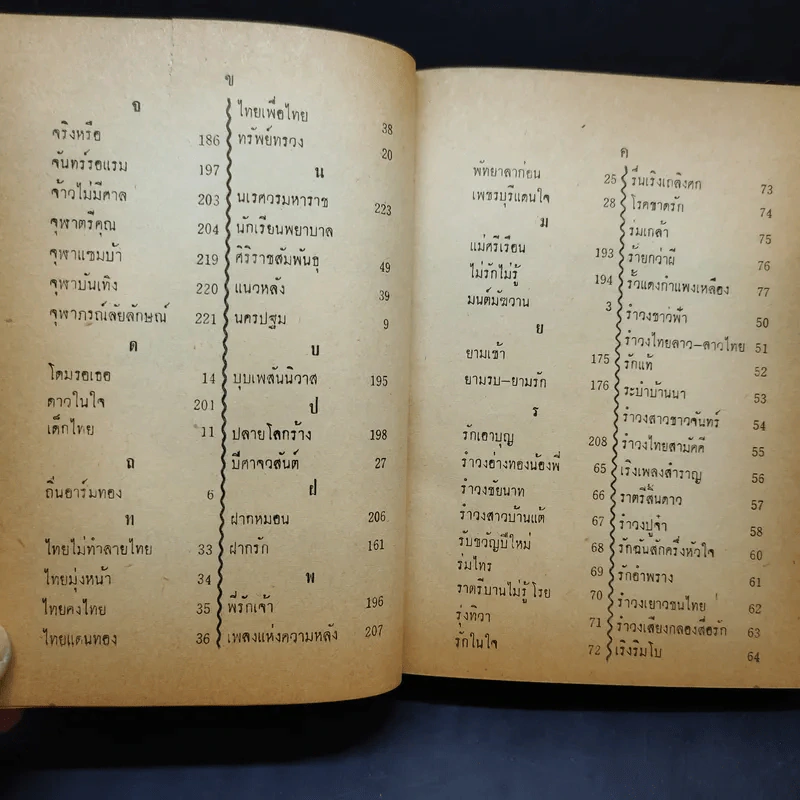 ข
จ
จริงหรือ 186
จันทร์รอแรม 197
จ้าวไม่มีศาล 203
จุฬาตรีคุณ 204
จุฬาแซมบ้า 219
จุฬาบันเทิง 220
จุฬาภรณ์เลัยลักษณ์ 221
ด
โดมรอเธอ 14
ดาวในใจ 201
เด็กไทย 11
ถ
ถิ่นอาร์มทอง 6
ท
ไทยไม่ทำลายไทย 33
ไทยมุ่งหน้า 34
ไทยคงไทย 35
ไทยแดนทอง 36
ไทยเพื่อไทย 38
ทรัพย์ทรวง 20
น
นเรศวรมหาราช 223
นักเรียนพยาบาล
ศิริราชสัมพันธุ์ 49
แนวหลัง 39
นครปฐม 9
บ
บุบเพสันนิวาส 195
ป
ปลายโลกร้าง 198
ปีศาจวสันต์ 27
ฝ
ฝากหมอน 206
ฝากรัก 161
พ
พี่รักเจ้า 196
เพลงแห่งความหลัง 207
ค
พัทยาลาก่อน 25
เพชรบุรีแดนใจ 28
ม
แม่ศรีเรือน 193
ไม่รักไม่รู้ 194
มนต์มัฆวาน 3
ย
ยามเช้า 175
ยามรบ-ยามรัก 176
ร
รักเอาบุญ 208
รำวงอ่างทองน้องพี่ 65
รำวงชัยนาท 66
รำวงสาวบ้านแต้ 67
รับขวัญปีใหม่ 68
ร่มไทร 69
ราตรีบานไม่รู้โรย 70
รุ่งทิวา 71
รักในใจ 72
รื่นเริงเถลิงศก 73
โรคขาดรัก 74
ร่มเกล้า 75
ร้ายกว่าผี 76
รั้วแดงกำแพงเหลือง 77
รำวงชาวฟ้า 50
รำวงไทยลาว-ลาวไทย 51
รักแท้ 52
ระบำบ้านนา 53
รำวงสาวชาวจันทร์ 54
รำวงไทยสามัคคี 55
เริงเพลงสำราญ 56
ราตรีสิ้นดาว 57
รำวงปูจ๋า 58
รักฉันสักครึ่งหัวใจ 60
รักอำพราง 61
รำวงเยาวชนไทย 62
รำวงเสียงกลองสื่อรัก 63
เริงริมโบ 64